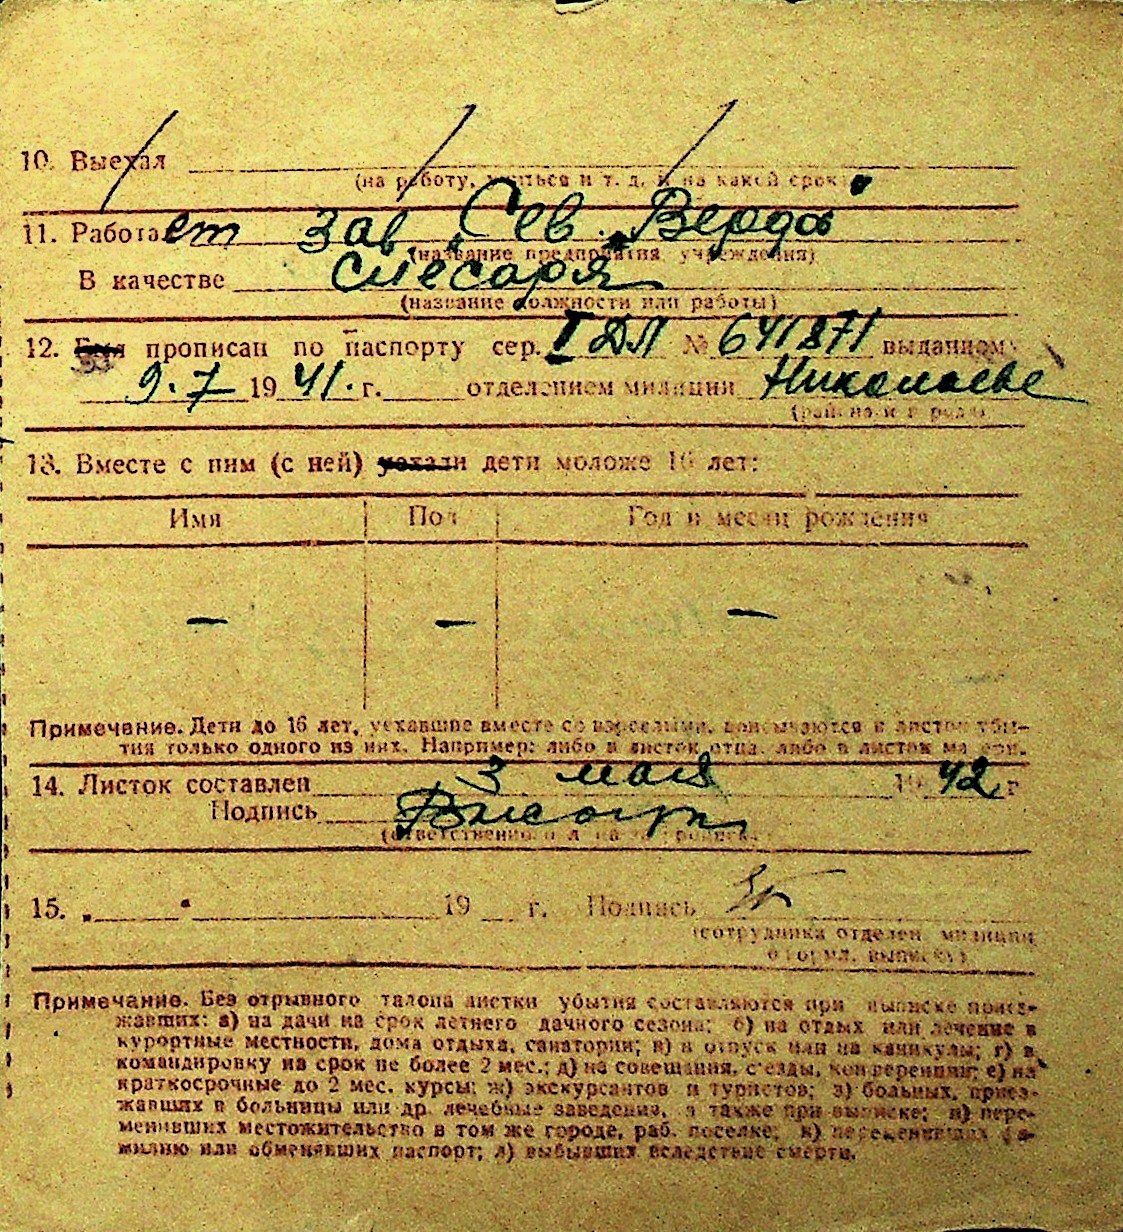 10. Выехал
(на работу, учиться и т. д. и на какой срок)
11. Работает зав. „Сев. Верфь"
(название предприятия, учреждения)
В качестве слесаря
(название должности или работы)
12. Был прописан по паспорту сер. I ДЛ № 641871 выданному
9.7 19 41. г. отделением милиции Николаеве
(района и города)
13. Вместе с ним (с ней) уехали дети моложе 16 лет:
Имя Пол Год и месяц рождения
— — —
Примечание. Дети до 16 лет, уехавшие вместе со взрослыми, вписываются в листок убы-
тия только одного из них. Например: либо в листок отца, либо в листок матери.
14. Листок составлен 3 мая 19 42 г
Подпись
(ответственного лица за прописку)
15. „ " 19 г. Подпись
(сотрудника отделен. милиции,
оформл. выписку)
Примечание. Без отрывного талона листки убытия составляются при выписке приез-
жавших: а) на дачи на срок летнего дачного сезона; б) на отдых или лечение в
курортные местности, дома отдыха, санатории; в) в отпуск или на каникулы; г) в
командировку на срок не более 2 мес.; д) на совещания, с'езды, конференции; е) на
краткосрочные до 2 мес. курсы; ж) экскурсантов и туристов; з) больных, приез-
жавших в больницы или др. лечебные заведения, а также при выписке; и) пере-
менивших местожительство в том же городе, раб. поселке; к) переменивших фа-
милию или обменявших паспорт; л) выбывших вследствие смерти.